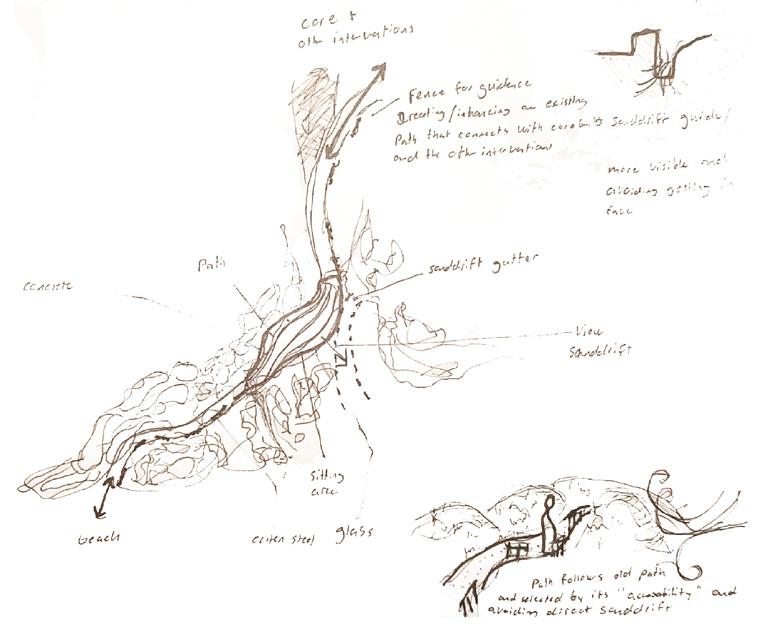 core +
oth interventions
Fence for guidance
Creating/inhancing an existing
Path that connects with
and the oth interventions
Sanddrift guide/
more visible and
avoiding getting in
face
Sanddrift gutter
Path
Concrete
View
Sanddrift
Sitting
area
beach
corten steel
glass
Path follows old path
and selected by its "accessability" and
avoiding direct sanddrift